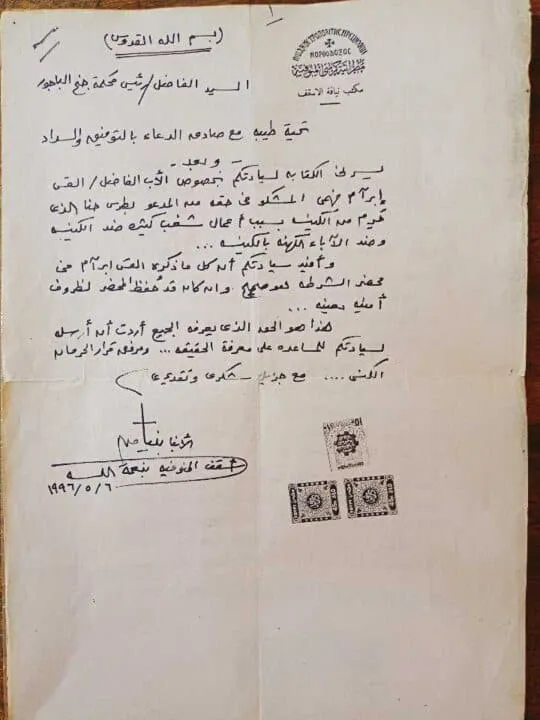 (بسم الله القدوس)
ΟΡΘΟΔΟΞΟΣ
مكتب نيافة الأسقف
السيد الفاضل / رئيس محكمة جنح الباجور
تحية طيبه مع صادق الدعاء بالتوفيق والسداد
وبعد
يسرنى الكتابه لسيادتكم بخصوص الأب الفاضل / القس
إبرآم فهمى المشكو فى حقه من المدعو بطرس حنا الذى
حُرِم من الكنيسه بسبب أعمال شغب كثيره ضد الكنيسه
وضد الآباء الكهنه بالكنيسه ...
وأفيد سيادتكم أن كل ما ذكره القس ابرآم فى
محضر الشرطه هو صحيح وان كان قد حُفظ المحضر لظروف
أمنيه معينه ...
هذا هو الحق الذى يعرفه الجميع أردت أن أرسله
لسيادتكم للمساعده على معرفة الحقيقه ... ومرفق قرار الحرمان
الكنسى .... مع جزيل شكرى وتقديرى
الأنبا بنيامين
أسقف المنوفيه بنعمة الله
١٩٩٦/٥/٦